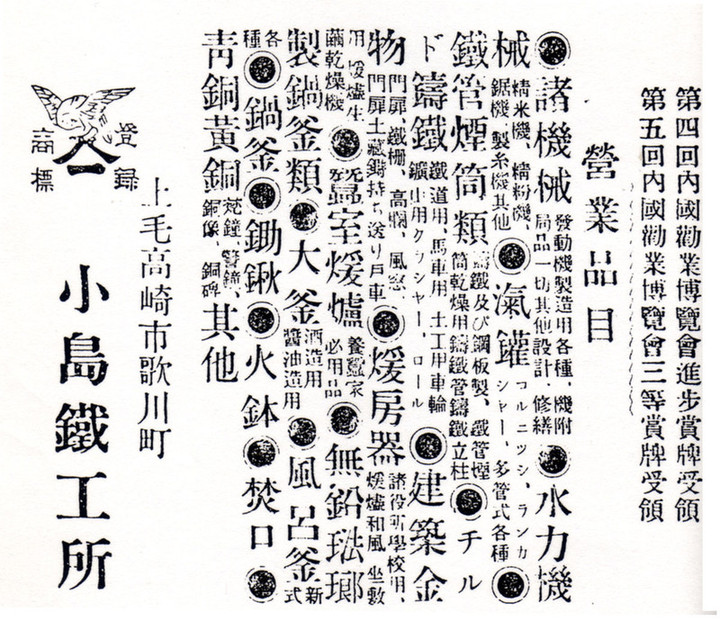 第四回內國勸業博覽會進步賞牌受領
第五回內國勸業博覽會三等賞牌受領
營業品目
◉諸機械 發動機製造用各種、機附局品一切其他設計、修繕 ◉水力機
械 精米機、精粉機、鋸機、製糸機其他 ◉氣鑵 コルニツシ、ランカシャー、多管式各種 ◉
鐵管煙筒類 鑄鐵及び鋼板製、鐵管煙筒乾燥用鑄鐵管鑄鐵立柱 ◉チル
ド鑄鐵 鐵道用、馬車用、土工用車輪鑛山用クラッシャー、ロール ◉建築金
物 門扉、鐵柵、高欄、風窓門扉土藏鑄持ち送り戶車 ◉煖房器 諸役所學校用、煖爐和風坐敷
用煖爐生繭乾燥機 ◉蠶室煖爐 養蠶家必用品 ◉無鉛琺瑯
製鍋釜類◉大釜 酒造用醬油造用 ◉風呂釜 新式
各種◉鍋釜◉鋤鍬◉火鉢◉焚口◉
青銅黃銅 梵鐘、警鐘、銅像、銅碑 其他
登錄
商標
上毛高崎市歌川町
小島鐵工所